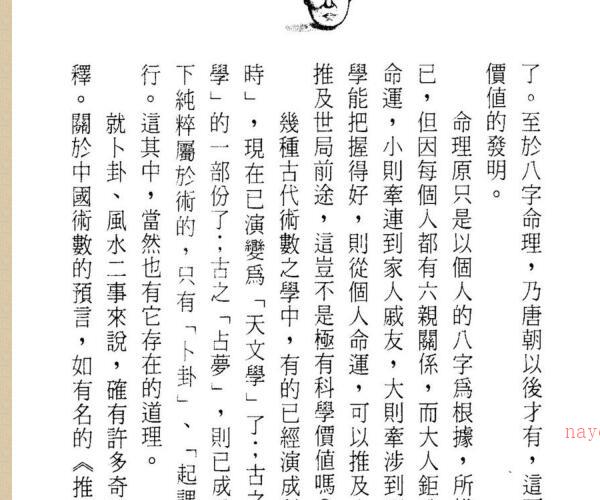 了。至於八字命理，乃唐朝以後才有，這
價值的發明。
命理原只是以個人的八字爲根據，所
已，但因每個人都有六親關係，而大人鉅
命運，小則牽連到家人戚友，大則牽涉到
學能把握得好，則從個人命運，可以推及
推及世局前途，這豈不是極有科學價值嗎
幾種古代術數之學中，有的已經演成
時」，現在已演變爲「天文學」了；古之
學」的一部份了；古之「占夢」，則已成
下純粹屬於術的，只有「卜卦」、「起課
行。這其中，當然也有它存在的道理。
就卜卦、風水二事來說，確有許多奇
釋。關於中國術數的預言，如有名的《推
nayo